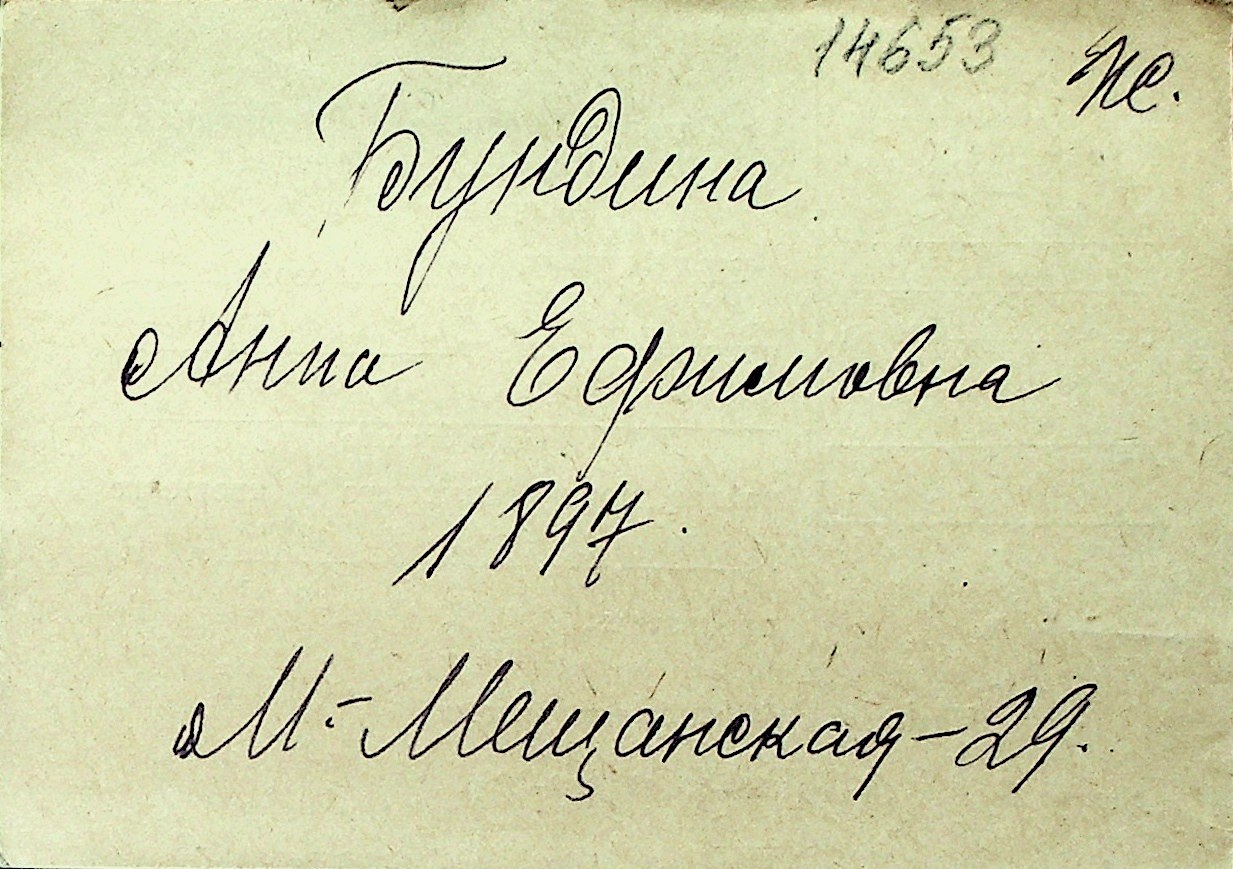 14653 Ж.
Бундина
Анна Ефимовна
1897.
М.-Мещанская-29.